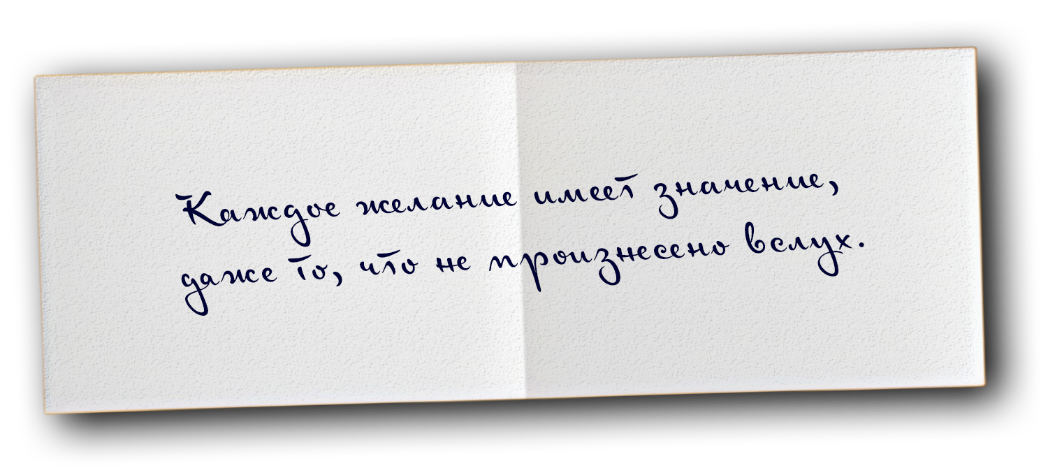 Каждое желание имеет значение,
даже то, что не произнесено вслух.